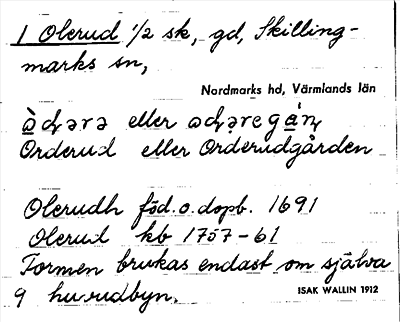 1 Olerud 1/2 sk, gd, Skilling-
marks sn,
Nordmarks hd, Värmlands län
eller
Orderud eller Orderudgården
Olerudh föd.o.dopb. 1691
Olerud kb 1757-61
Formen brukas endast om själva
9 huvudbyn.
ISAK WALLIN 1912